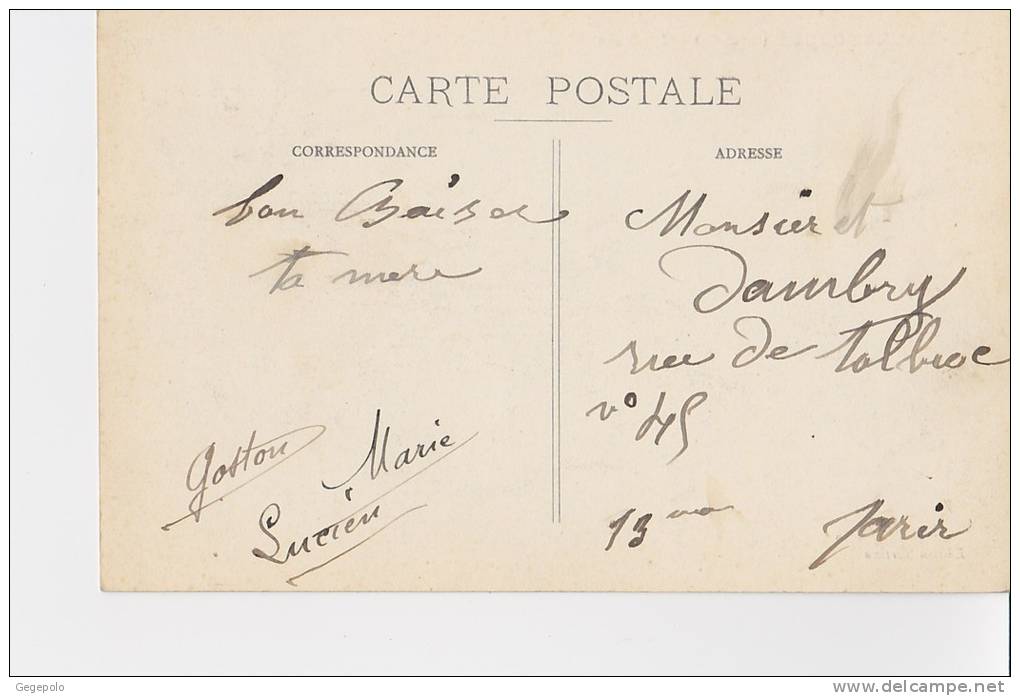 CARTE POSTALE
CORRESPONDANCE
bon Baiser
ta mere
Gaston
Marie
Lucien
ADRESSE
Monsieur et
Dambry
rue de tolbiac
no 45
13 me Paris
Gegepolo
www.delcampe.net